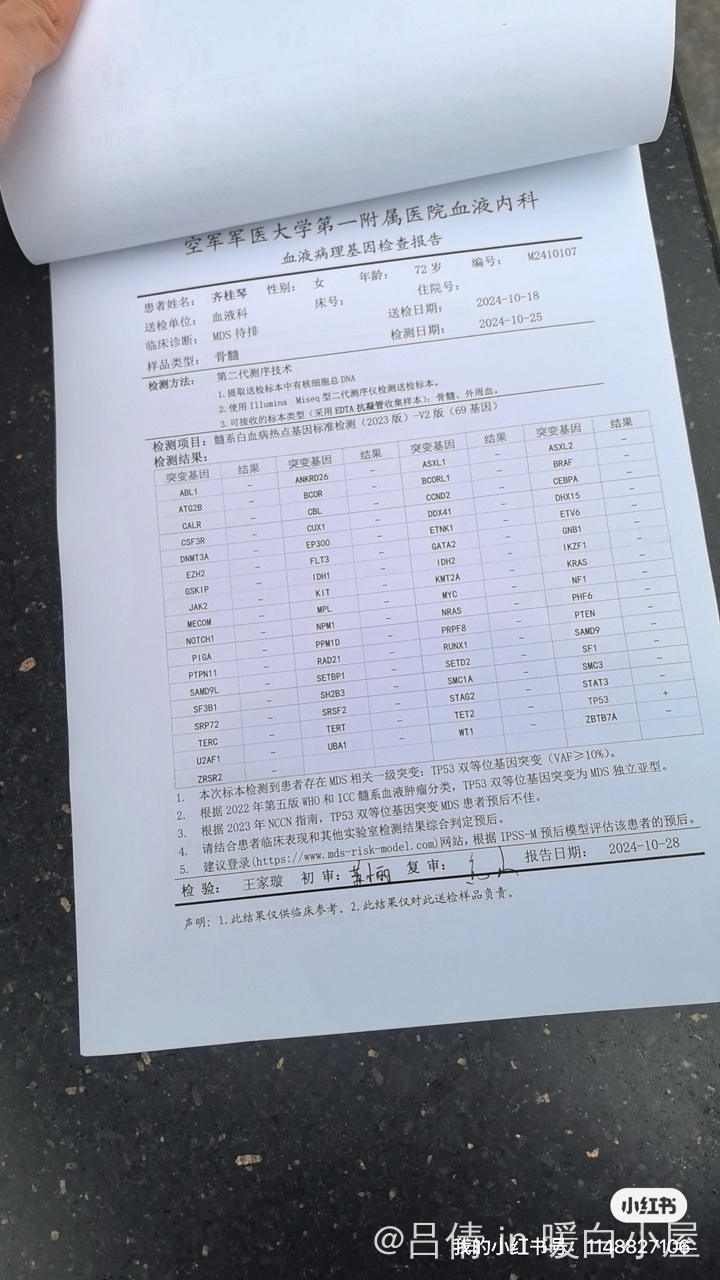 空军军医大学第一附属医院血液内科
血液病理基因检查报告
患者姓名: 齐桂琴 性别: 女 年龄: 72岁 编号: M2410107
送检单位: 血液科 床号: 住院号:
临床诊断: MDS待排 送检日期: 2024-10-18
样品类型: 骨髓 检测日期: 2024-10-25
检测方法: 第二代测序技术
1.提取送检标本中有核细胞总DNA
2.使用Illumina Miseq型二代测序仪检测送检标本。
3.可接收的标本类型(采用EDTA抗凝管收集样本): 骨髓、外周血。
检测项目: 髓系白血病热点基因标准检测(2023版)-V2版(69基因)
检测结果:
突变基因 结果 突变基因 结果 突变基因 结果 突变基因 结果
ABL1 - ANKRD26 - ASXL1 - ASXL2 -
ATG2B - BCOR - BCORL1 - BRAF -
CALR - CBL - CCND2 - CEBPA -
CSF3R - CUX1 - DDX41 - DHX15 -
DNMT3A - EP300 - ETNK1 - ETV6 -
EZH2 - FLT3 - GATA2 - GNB1 -
GSKIP - IDH1 - IDH2 - IKZF1 -
JAK2 - KIT - KMT2A - KRAS -
MECOM - MPL - MYC - NF1 -
NOTCH1 - NPM1 - NRAS - PHF6 -
PIGA - PPM1D - PRPF8 - PTEN -
PTPN11 - RAD21 - RUNX1 - SAMD9 -
SAMD9L - SETBP1 - SETD2 - SF1 -
SF3B1 - SH2B3 - SMC1A - SMC3 -
SRP72 - SRSF2 - STAG2 - STAT3 -
TERC - TERT - TET2 - TP53 +
U2AF1 - UBA1 - WT1 - ZBTB7A -
ZRSR2 -
1. 本次标本检测到患者存在MDS相关一级突变: TP53双等位基因突变(VAF≥10%)。
2. 根据2022年第五版WHO和ICC髓系血液肿瘤分类, TP53双等位基因突变为MDS独立亚型。
3. 根据2023年NCCN指南, TP53双等位基因突变MDS患者预后不佳。
4. 请结合患者临床表现和其他实验室检测结果综合判定预后。
5. 建议登录(https://www.mds-risk-model.com)网站, 根据IPSS-M预后模型评估该患者的预后。
检 验: 王家璇 初 审: 复 审: 报告日期: 2024-10-28
声明: 1.此结果仅供临床参考。2.此结果仅对此送检样品负责。
小红书
@吕倩 in 暖白小屋
我的小红书号: 1148327106